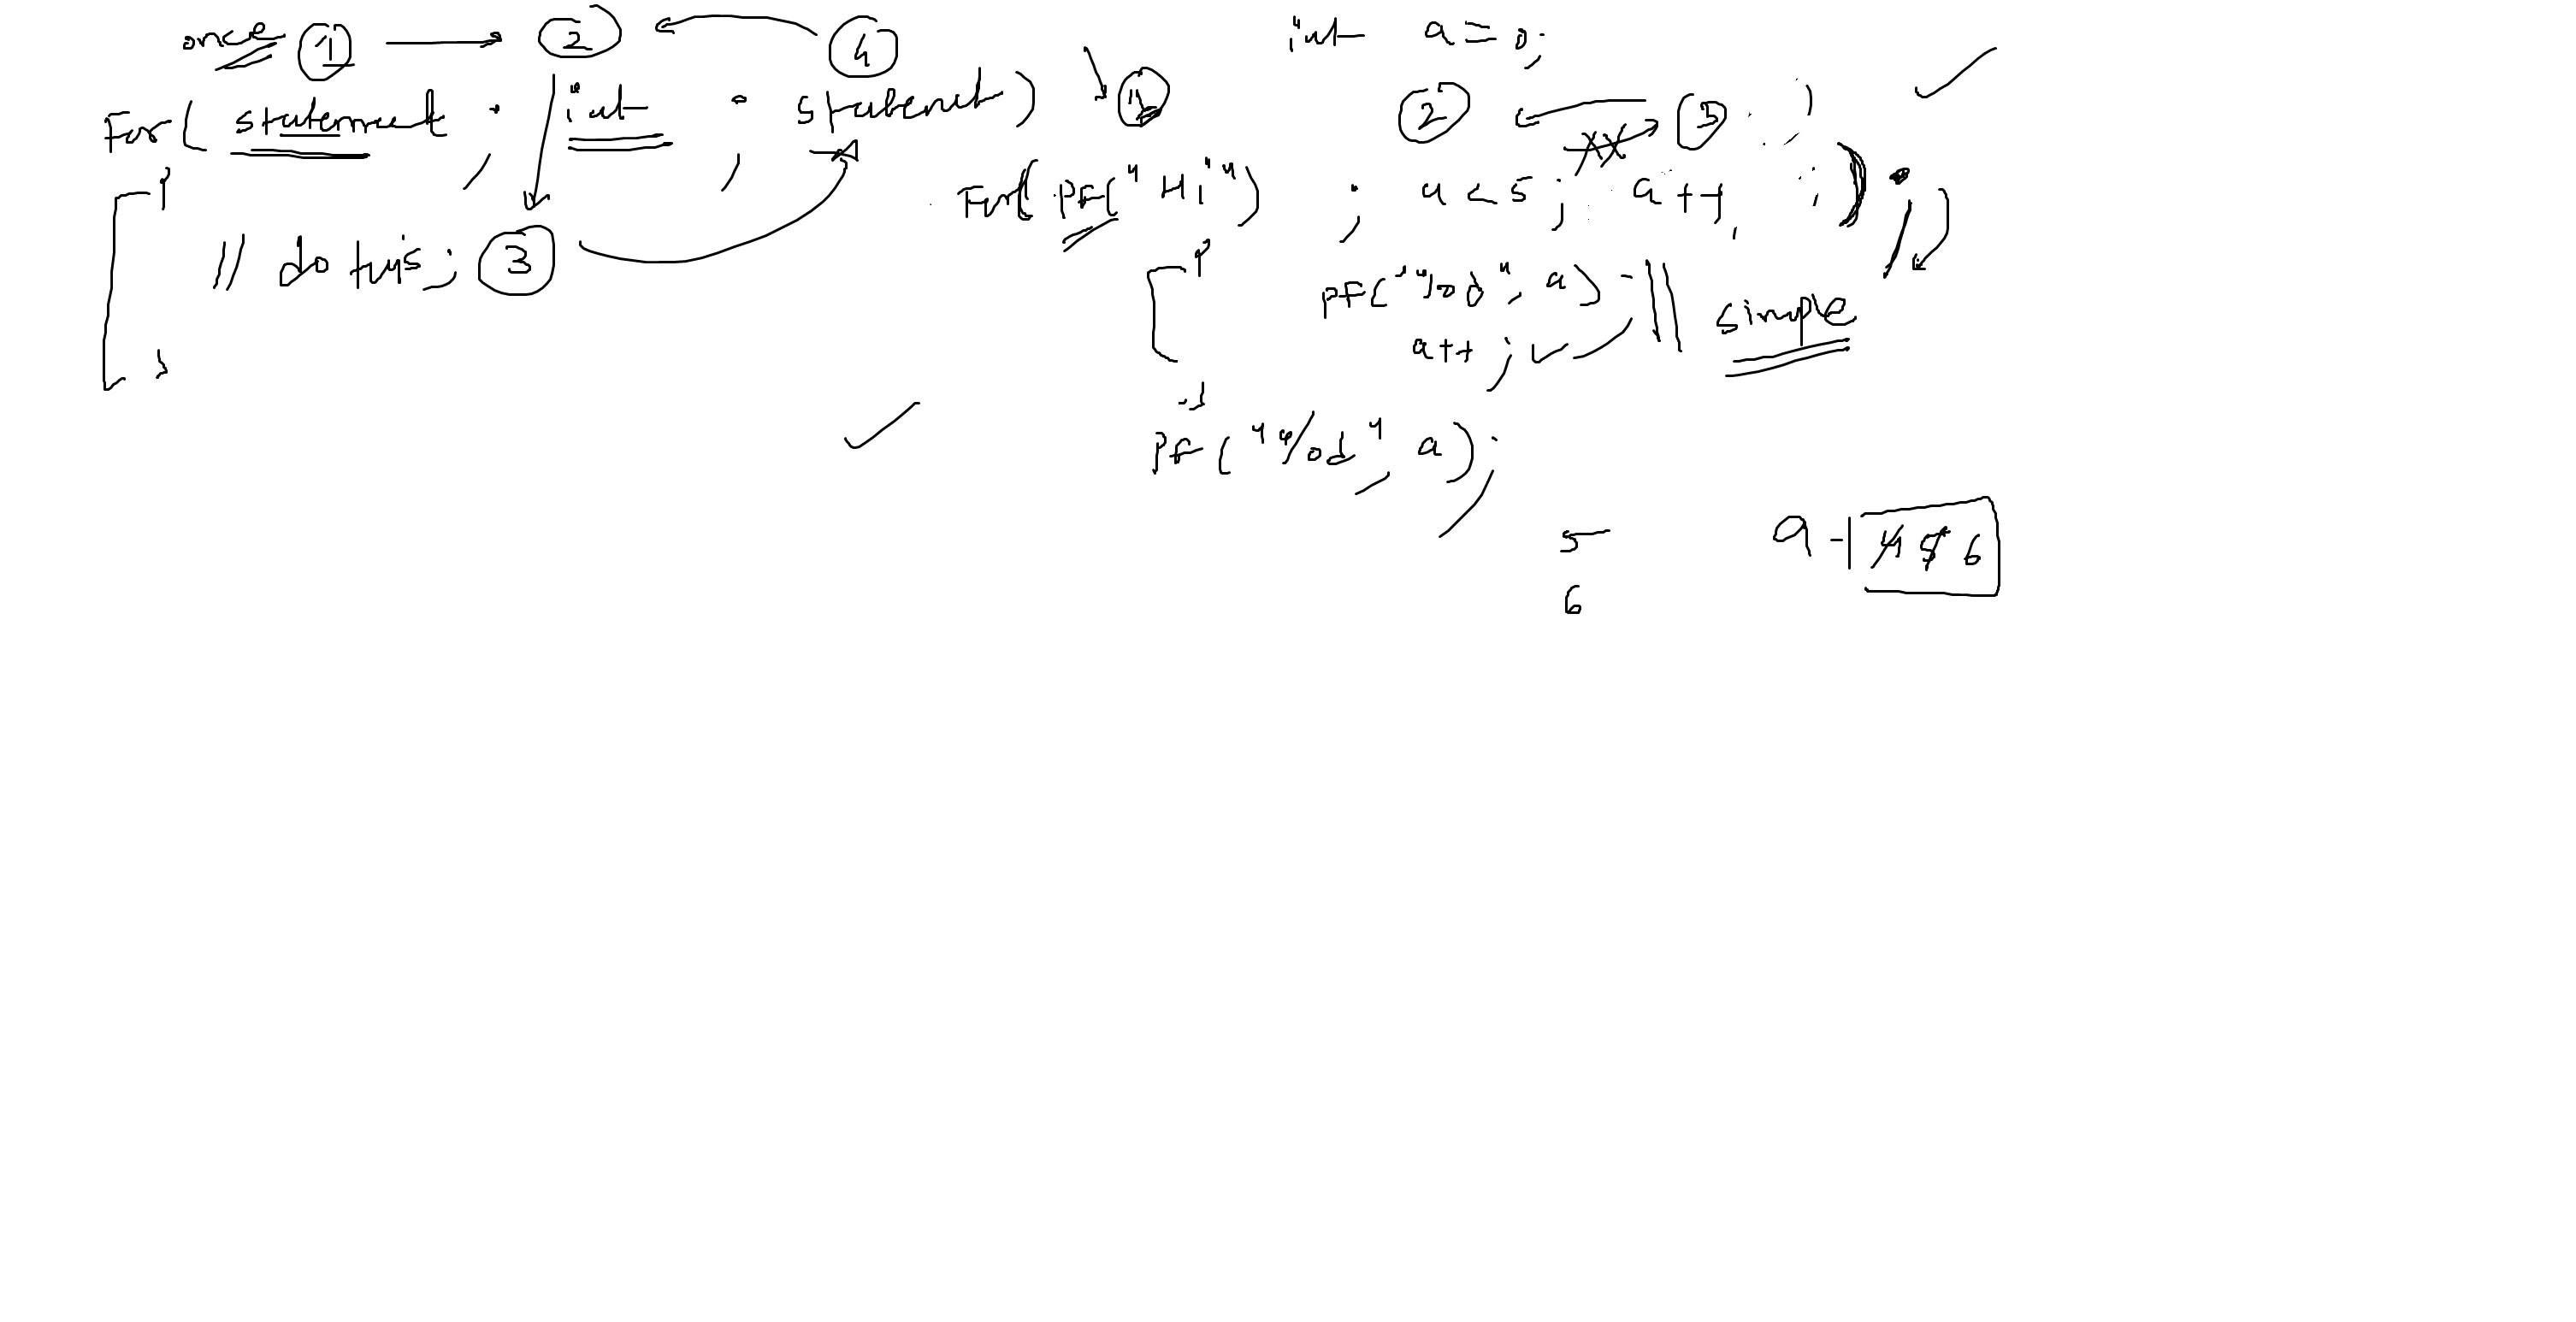 once ① → ② ← ④
For( statement ; int ; statement )
{
// do this; ③
}
int a = 0;
① ② ③
For( PF("Hi") ; a < 5 ; a++ ) ;
{
PF("%d", a)
a++ ;
simple
}
PF("%d", a);
5
6
a - 4 5 6